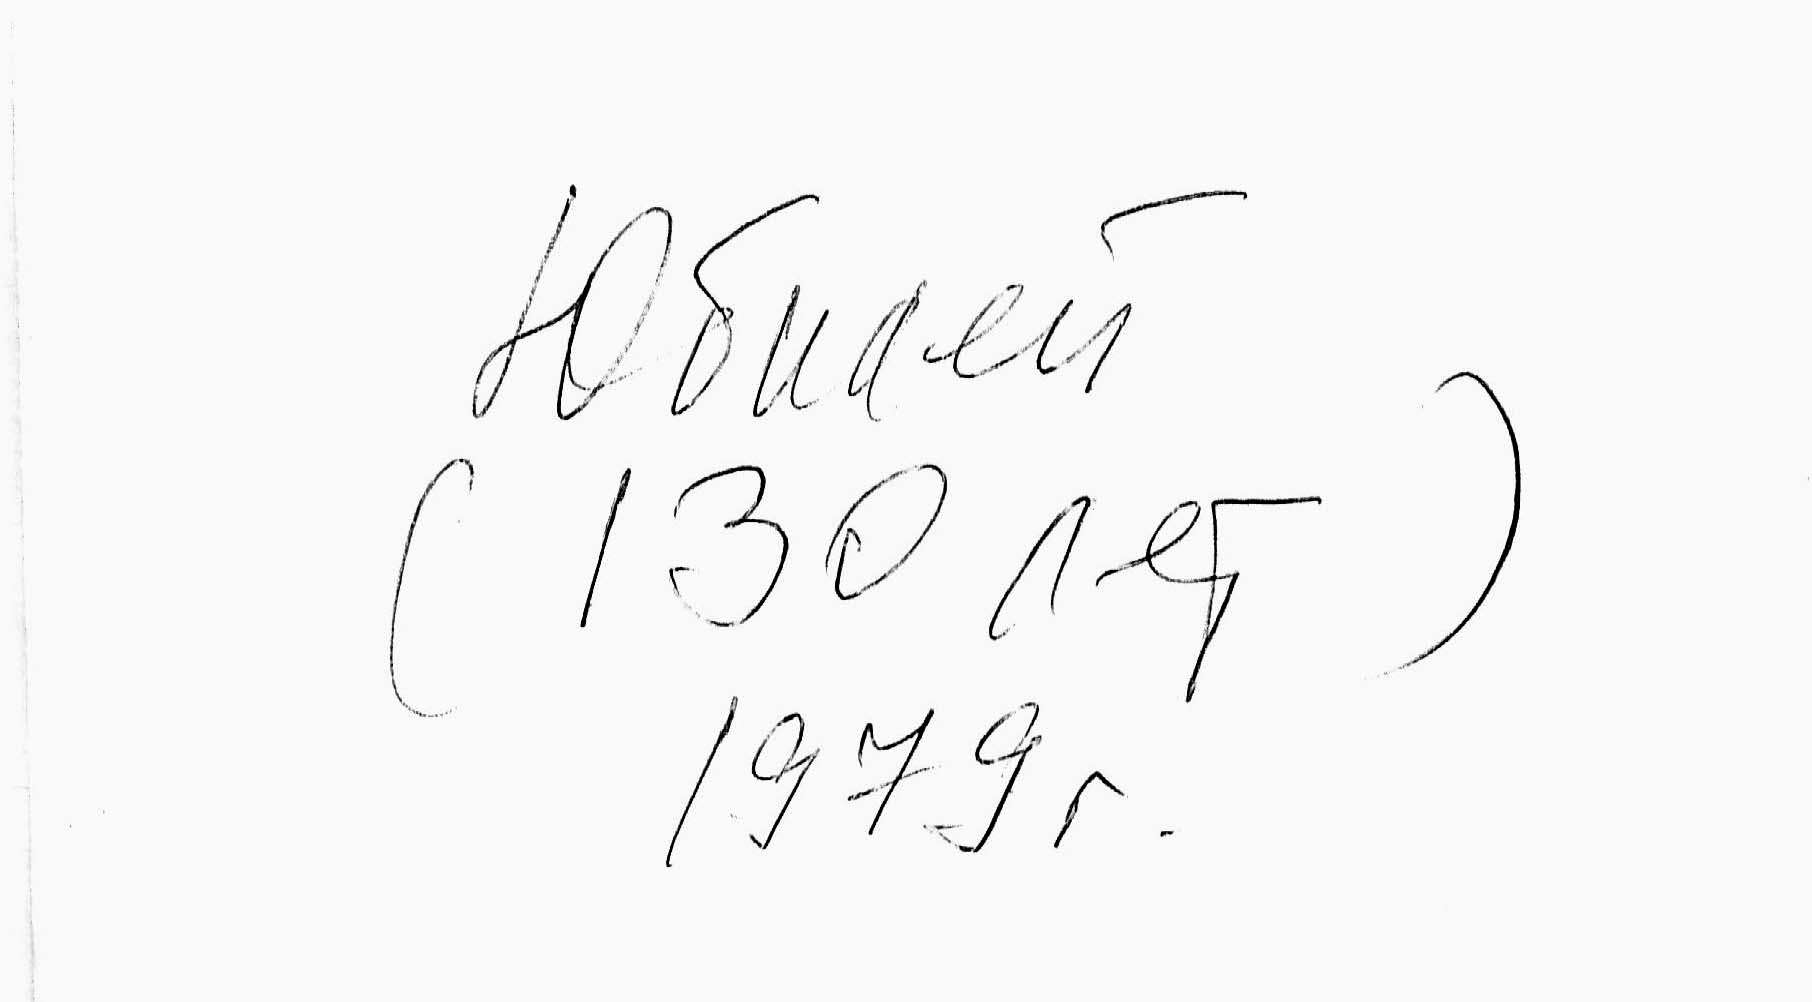 Юбилей
(130 лет)
1979 г.